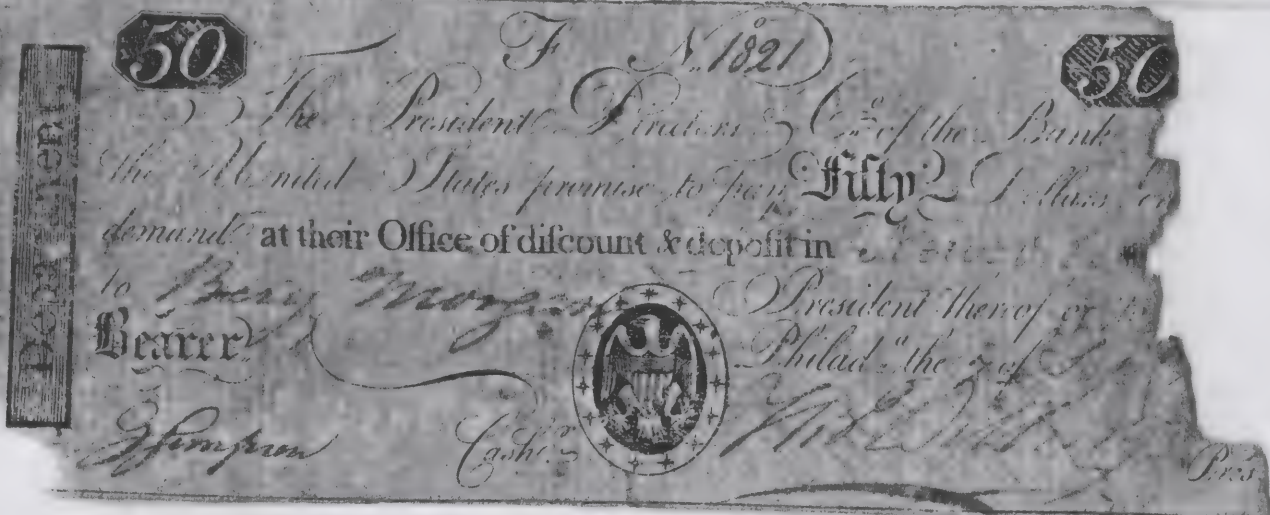 50 F No. 1821 50
The President Directors & Co. of the Bank
the United States promise to pay Fifty Dollars on
demand at their Office of diſcount & depoſit in
to Morgan President thereof or to
Bearer Philad.a the of
G Simpson Cashr. Pres